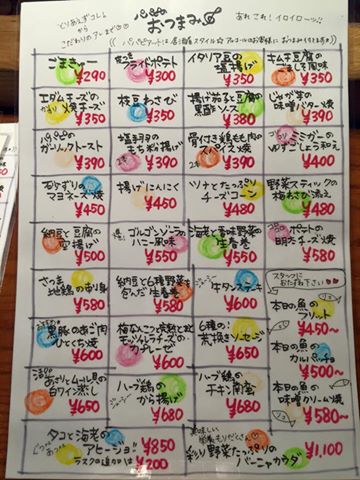 とりあえずコレ♪
から
こだわりのアレまで
おつまみ
あれ これ！ イロイロ〜ッ!!
ごまきゅー
¥290
フライドポテト
¥300
イタリア豆の
塩揚げ
¥350
キムチ豆腐の
ごましそ風味
¥350
エダムチーズの
カリカリ焼チーズ
¥350
枝豆わさび
¥350
揚げ茄子と豆腐の
黒酢ソース
¥380
じゃが芋の
味噌バター焼
¥390
ガーリックトースト
¥390
塩手羽の
もち粉揚げ
¥390
骨付き鶏もも肉の
スパイス焼
¥390
ゆずこしょう和え
¥400
砂ずりの
マヨネーズ焼
¥450
揚げにんにく
¥450
ツナとたっぷり
チーズコーン
¥480
野菜スティックの
梅わさび添え
¥480
納豆と豆腐の
包揚げ
¥500
ゴルゴンゾーラの
ハニー風味
¥550
海老と香味野菜の
生春巻
¥550
ポテトの
明太チーズ焼
¥580
さつま
地鶏のお刺身
¥580
納豆と6種野菜を
包んだ生春巻
¥580
牛タンステーキ
¥600
スタッフに
おたずね下さい
本日の魚の
¥450〜
黒豚のあご肉
ひとくち焼
¥600
カプレーゼ
¥600
6種の
荒挽きソーセージ
¥650
本日の魚の
カルパッチョ
¥500〜
あさりとムール貝の
白ワイン蒸し
¥650
ハーブ鶏の
から揚げ
¥680
ハーブ鶏の
チキン南蛮
¥680
本日の魚の
味噌クリーム焼
¥580
タコと海老の
アヒージョ
¥850
ラスクの追加は
¥200
美味しい
彩り野菜たっぷりの
バーニャカウダ
¥1,100